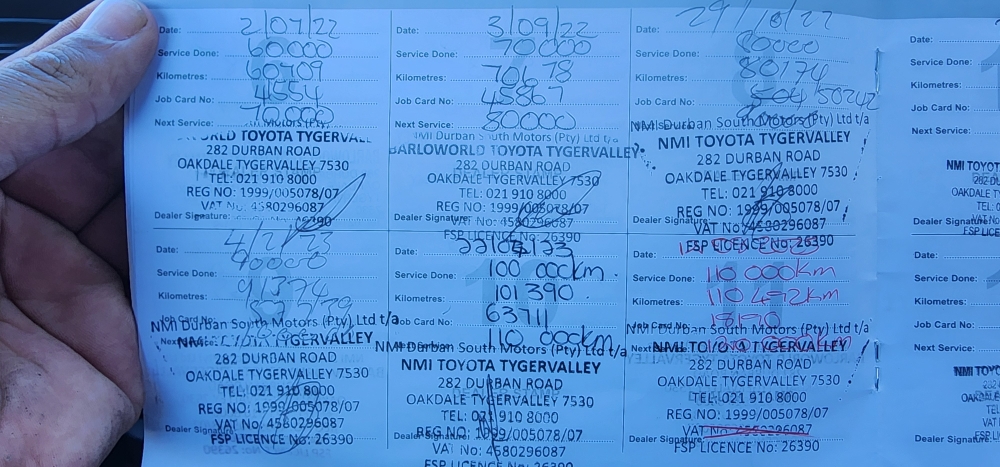 Date: 2/07/22
Service Done: 60000
Kilometres: 60709
Job Card No: 4554
Next Service: 70000
TOYOTA TYGERVALL
282 DURBAN ROAD
OAKDALE TYGERVALLEY 7530
TEL: 021 910 8000
REG NO: 1999/005078/07
VAT No: 4580296087
Dealer Signature: 26390
Date: 3/09/22
Service Done: 70000
Kilometres: 70678
Job Card No: 45867
Next Service: 80000
NMI Durban South Motors (Pty) Ltd t/a
BARLOWORLD TOYOTA TYGERVALLEY
282 DURBAN ROAD
OAKDALE TYGERVALLEY 7530
TEL: 021 910 8000
REG NO: 1999/005078/07
Dealer Signature: VAT No: 4580296087
FSP LICENCE No: 26390
Date: 29/10/22
Service Done: 80000
Kilometres: 80174
Job Card No: 50242
Next Service:
NMI Durban South Motors (Pty) Ltd t/a
NMI TOYOTA TYGERVALLEY
282 DURBAN ROAD
OAKDALE TYGERVALLEY 7530
TEL: 021 910 8000
REG NO: 1999/005078/07
Dealer Signature: VAT No: 4580296087
FSP LICENCE No: 26390
Date:
Service Done:
Kilometres:
Job Card No:
Next Service:
Dealer Signature:
Date:
Service Done: 90000
Kilometres: 91374
NMI Durban South Motors (Pty) Ltd t/a
TYGERVALLEY
282 DURBAN ROAD
OAKDALE TYGERVALLEY 7530
TEL: 021 910 8000
REG NO: 1999/005078/07
VAT No: 4580296087
Dealer Signature: FSP LICENCE No: 26390
Service Done: 100 000km.
Kilometres: 101 390
Job Card No: 63711
110 000km
NMI Durban South Motors (Pty) Ltd t/a
NMI TOYOTA TYGERVALLEY
282 DURBAN ROAD
OAKDALE TYGERVALLEY 7530
TEL: 021 910 8000
Dealer Signature: REG NO: 1999/005078/07
VAT No: 4580296087
FSP LICENCE No: 26390
Service Done: 110 000km
Kilometres: 110 472km
Job Card No: 18190
NMI Durban South Motors (Pty) Ltd t/a
Next Service: NMI TOYOTA TYGERVALLEY
282 DURBAN ROAD
OAKDALE TYGERVALLEY 7530
TEL: 021 910 8000
REG NO: 1999/005078/07
VAT No: 4580296087
Dealer Signature: FSP LICENCE No: 26390
Date:
Service Done:
Kilometres:
Job Card No:
Next Service:
Dealer Signature: